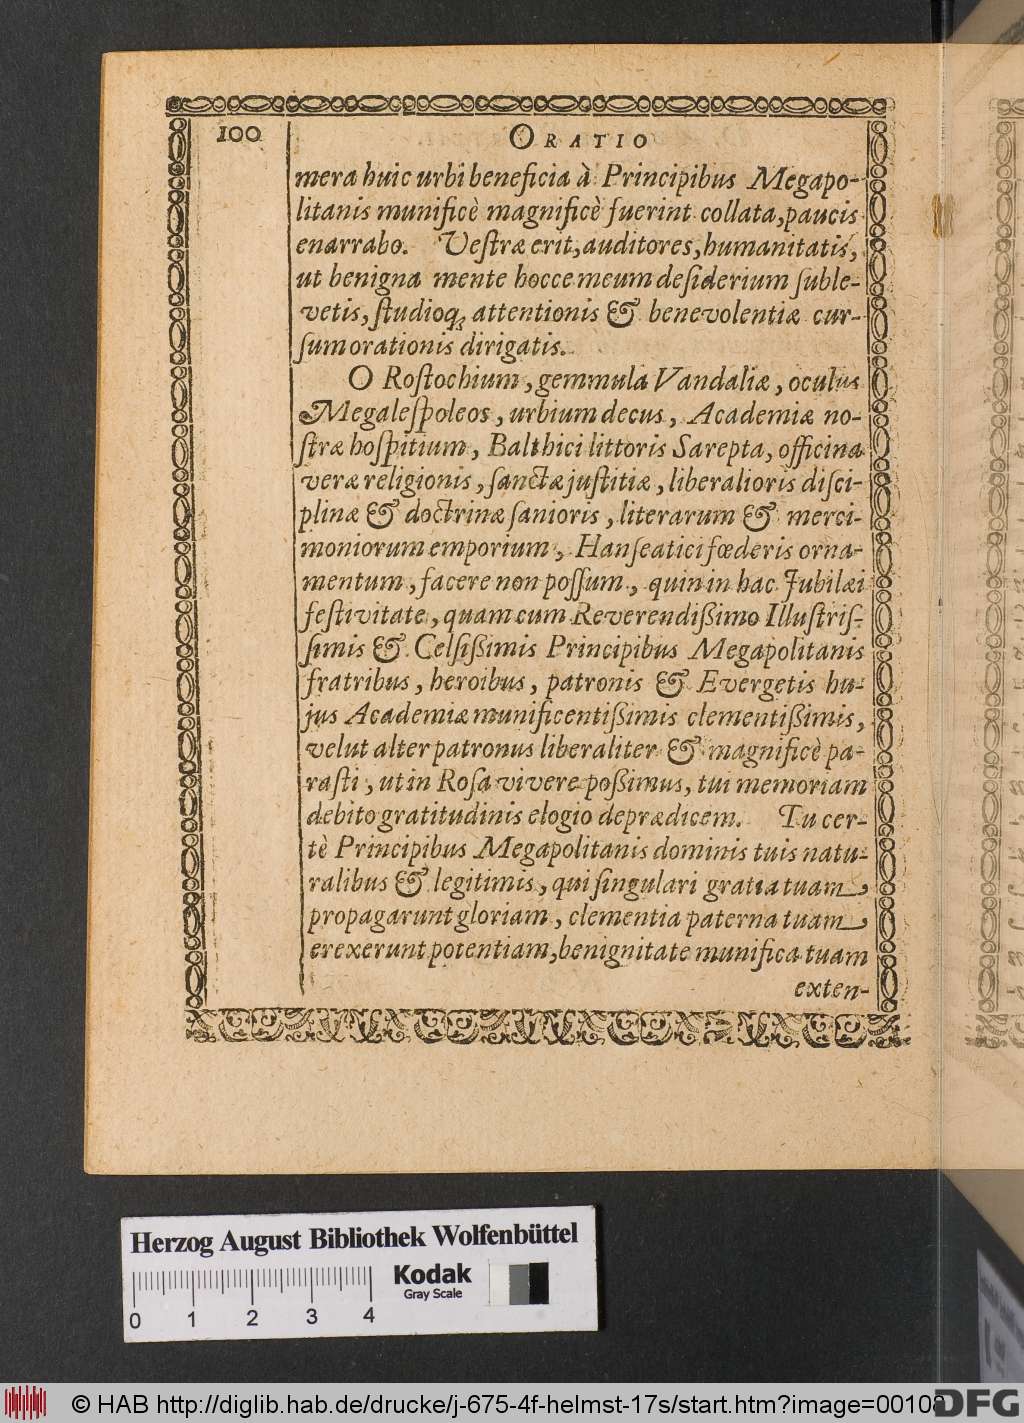 100
ORATIO
mera huic urbi beneficia à Principibus Megapo-
litanis munificè magnificè fuerint collata, paucis
enarrabo. Vestræ erit, auditores, humanitatis,
ut benigna mente hocce meum desiderium suble-
vetis, studioq; attentionis & benevolentiæ cur-
sum orationis dirigatis.
O Rostochium, gemmula Vandaliæ, oculus
Megalespoleos, urbium decus, Academiæ no-
stræ hospitium, Balthici littoris Sarepta, officina
veræ religionis, sanctæ justitiæ, liberalioris disci-
plinæ & doctrinæ sanioris, literarum & merci-
moniorum emporium, Hanseatici fœderis orna-
mentum, facere non possum, quin in hac Jubilæi
festivitate, quam cum Reverendißimo Illustris-
simis & Celsißimis Principibus Megapolitanis
fratribus, heroibus, patronis & Evergetis hu-
jus Academiæ munificentißimis clementißimis,
velut alter patronus liberaliter & magnificè pa-
rasti, ut in Rosa vivere poßimus, tui memoriam
debito gratitudinis elogio deprædicem. Tu cer-
tè Principibus Megapolitanis dominis tuis natu-
ralibus & legitimis, qui singulari gratia tuam
propagarunt gloriam, clementia paterna tuam
erexerunt potentiam, benignitate munifica tuam
exten-
Herzog August Bibliothek Wolfenbüttel
Kodak
Gray Scale
0 1 2 3 4
© HAB http://diglib.hab.de/drucke/j-675-4f-helmst-17s/start.htm?image=00108
DFG